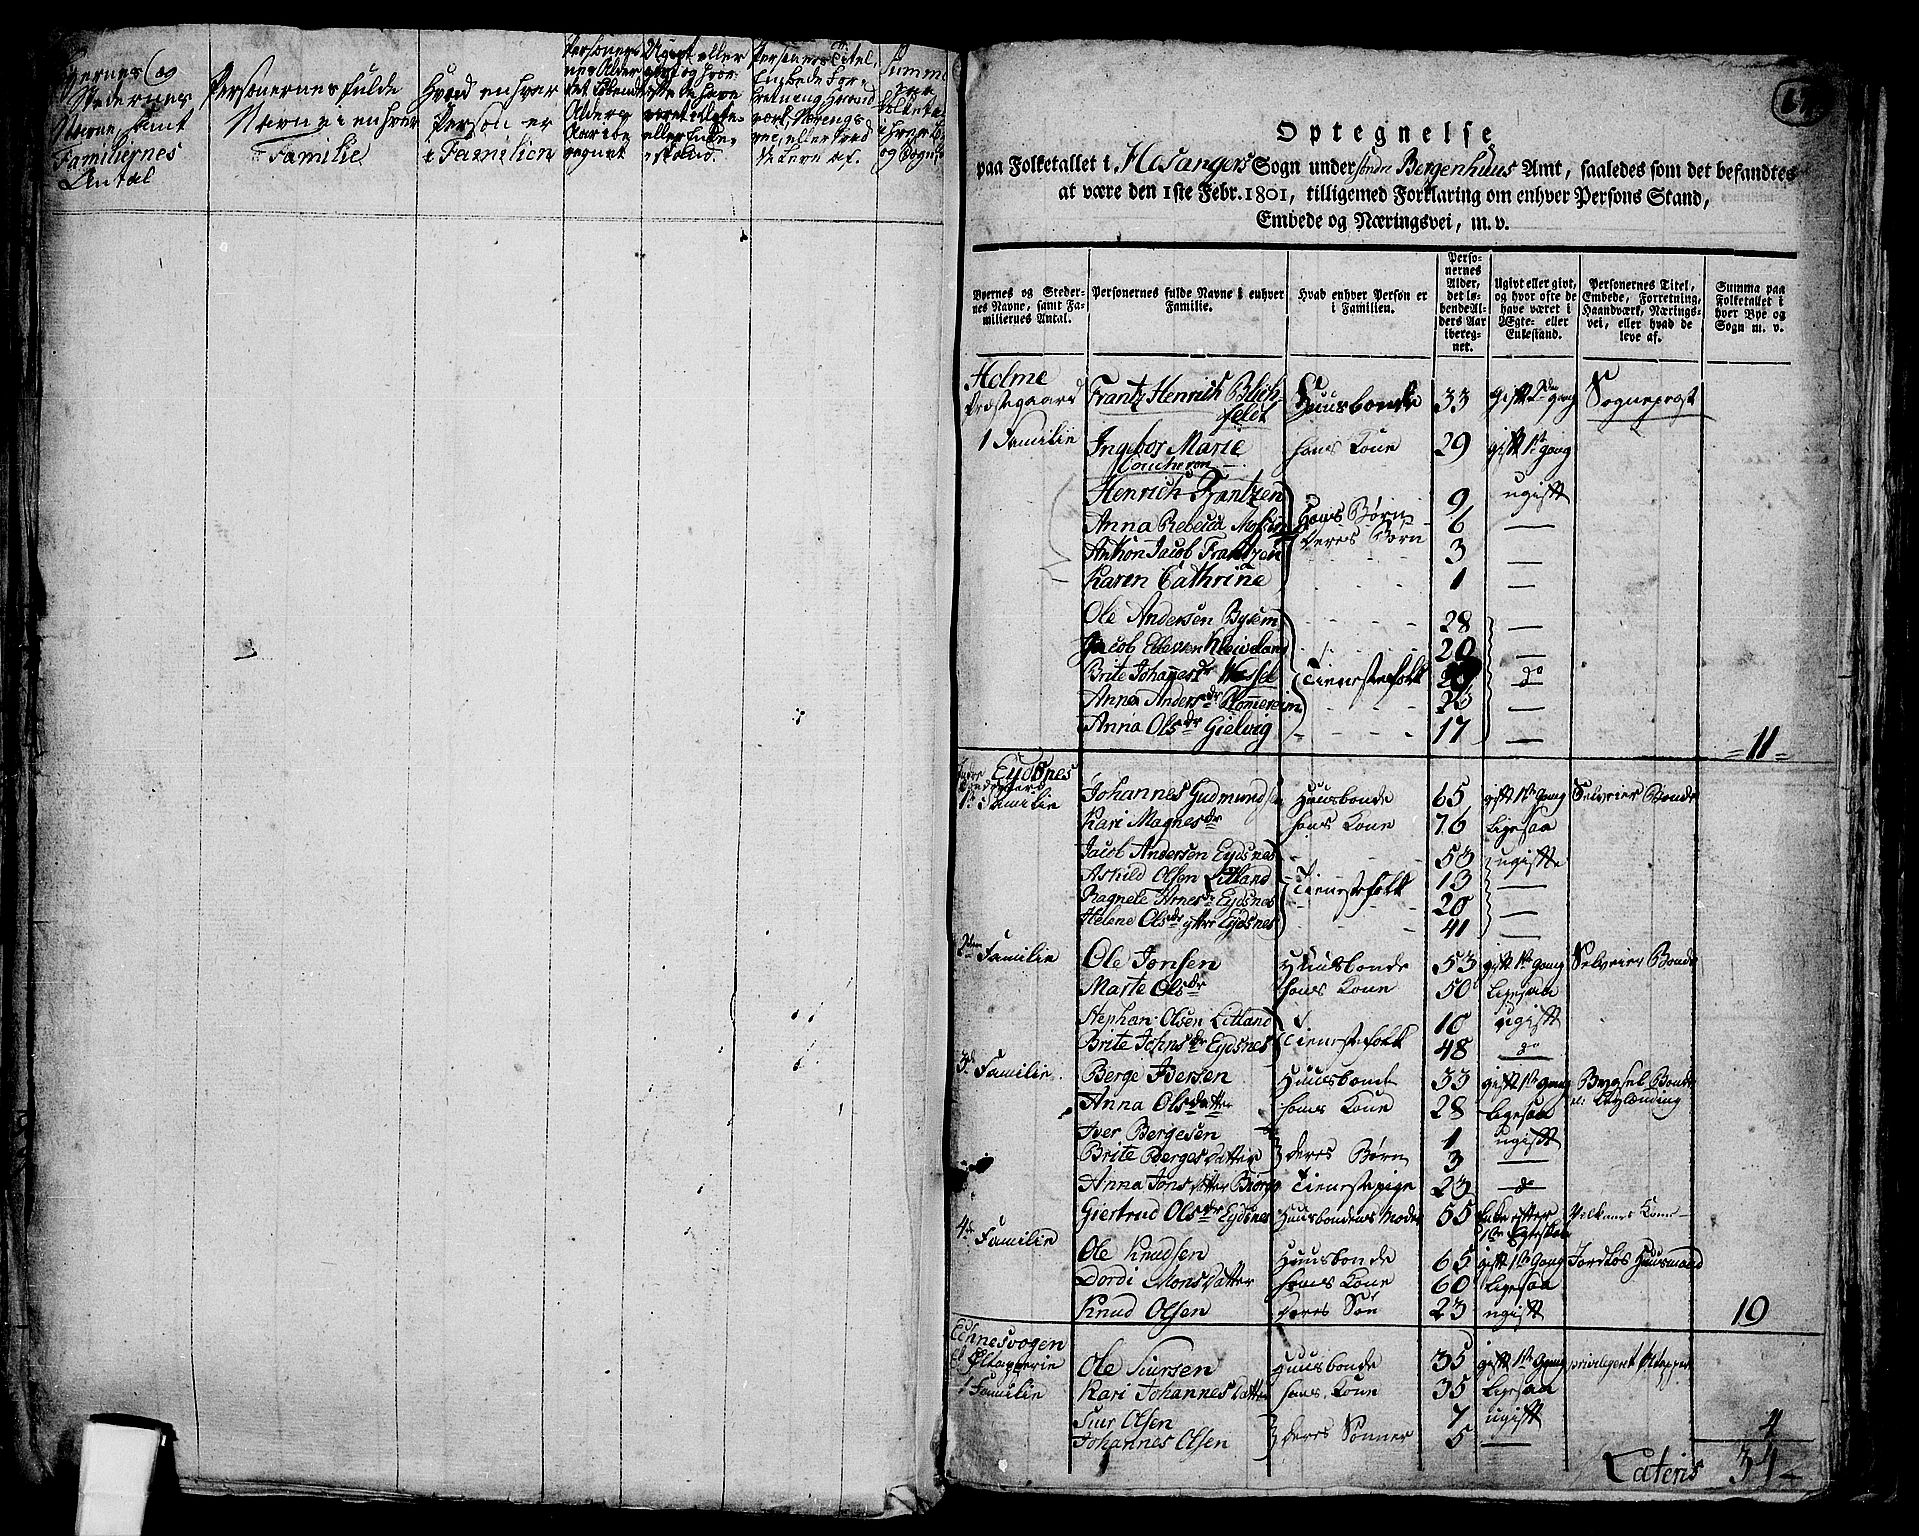 Byernes og
Stedernes
Navne, samt
Familiernes
Antal
Personernes fulde
Navne i enhver
Familie
Hvad enhver
Person er
i Familien
Personer-
nes Alder
det løbende
Alders
Aar ibe-
regnet
Ugivt eller
givt og hvor
ofte de have
været i Ægte-
eller Enke-
stand.
Personernes Titel,
Embede For-
retning Haand-
værk Nærings-
vei, eller hvad
de leve af.
Summa
paa
Folketal
i hver Bye
og Sogn
Optegnelse
paa Folketallet i Hosangers Sogn under søndre Bergenhuus Amt, saaledes som det befandtes
at være den 1ste Febr. 1801, tilligemed Forklaring om enhver Persons Stand,
Embede og Næringsvei, m. v.
Byernes og Steder-
nes Navne, samt Fa-
miliernes Antal.
Personernes fulde Navne i enhver
Familie.
Hvad enhver Person er
i Familien.
Perso-
nernes
Alder,
det lø-
bende Al-
ders Aar
iberegnet.
Ugivt eller givt,
og hvor ofte de
have været i
Ægte- eller
Enkestand.
Personernes Titel,
Embede, Forretning,
Haandværk, Nærings-
vei, eller hvad de
leve af.
Summa paa
Folketallet i
hver Bye og
Sogn m. v.
Holme
Præstegaard Frantz Henrich Blich- Huusbonde 33 Gift 2den gang Sogneprest
feldt
1 Familie Ingebor Marie hans Kone 29 gift 1ste gang
Coucheron
Henrich Frantzen 9 ugift
Anna Rebecca hans Børn 6 —
Anthon Jacob Frantzen deres Børn 3 —
Karen Cathrine 1 —
Ole Andersen Bysem 28 —
Jacob Ellevsen Kleiveland 20 —
Brite Johannesdr Wassel Tienestefolk do
Anna Andersdr Rommereim —
Anna Olsdr Gielvig 17 —
= 11 =
Indre Eydsnes
Bondegaard
1te Familie Johannes Gudmundsen Huusbonde 65 gift 1ste Gang Selveier Bonde
Kari Magnesdr hans Kone 76 Ligesaa
Jacob Andersen Eydsnes 53 ugifte
Askild Olsen Litland Tienestefolk 13 —
Ragnele Arnesdr Eydsnes 20
Helene Olsdr yttre Eydsnes 41 —
2den Familie Ole Jonsen Huusbonde 53 gift 1ste Gang Selveier Bonde
Marte Olsdr hans Kone 50 Ligesaa
Stephan Olsen Litland 10 ugift
Brite Johnsdr Eydsnes Tienestefolk 48 do
3de Familie Berge Iversen Huusbonde 33 gift 1ste Gang Bygsel Bonde
Anna Olsdatter hans Kone 28 Ligesaa el: Leylænding
Iver Bergesen 1 ugift
Brite Bergesdatter deres Børn 3 —
Anna Jonsdatter Tienestepige 23 do
Giertrud Olsdr Eydsnes Huusbondens Moder 55 Enke efter
1ste Ægteskab
4de Familie
Ole Knudsen Huusbonde 65 gift 1ste Gang Jordløs Huusmand
Dordi Monsdatter hans Kone 60 Ligesaa
Knud Olsen deres Søn 23 ugift
19
Eidnesvogen
et Øltapperie Ole Siursen Huusbonde 35 gift 1ste Gang privilegeret Øltapper
1 Familie Kari Johannesdatter hans Kone 35 Ligesaa
Siur Olsen 7 ugift
Johannes Olsen deres Sønner 5 —
4
Lateris 34